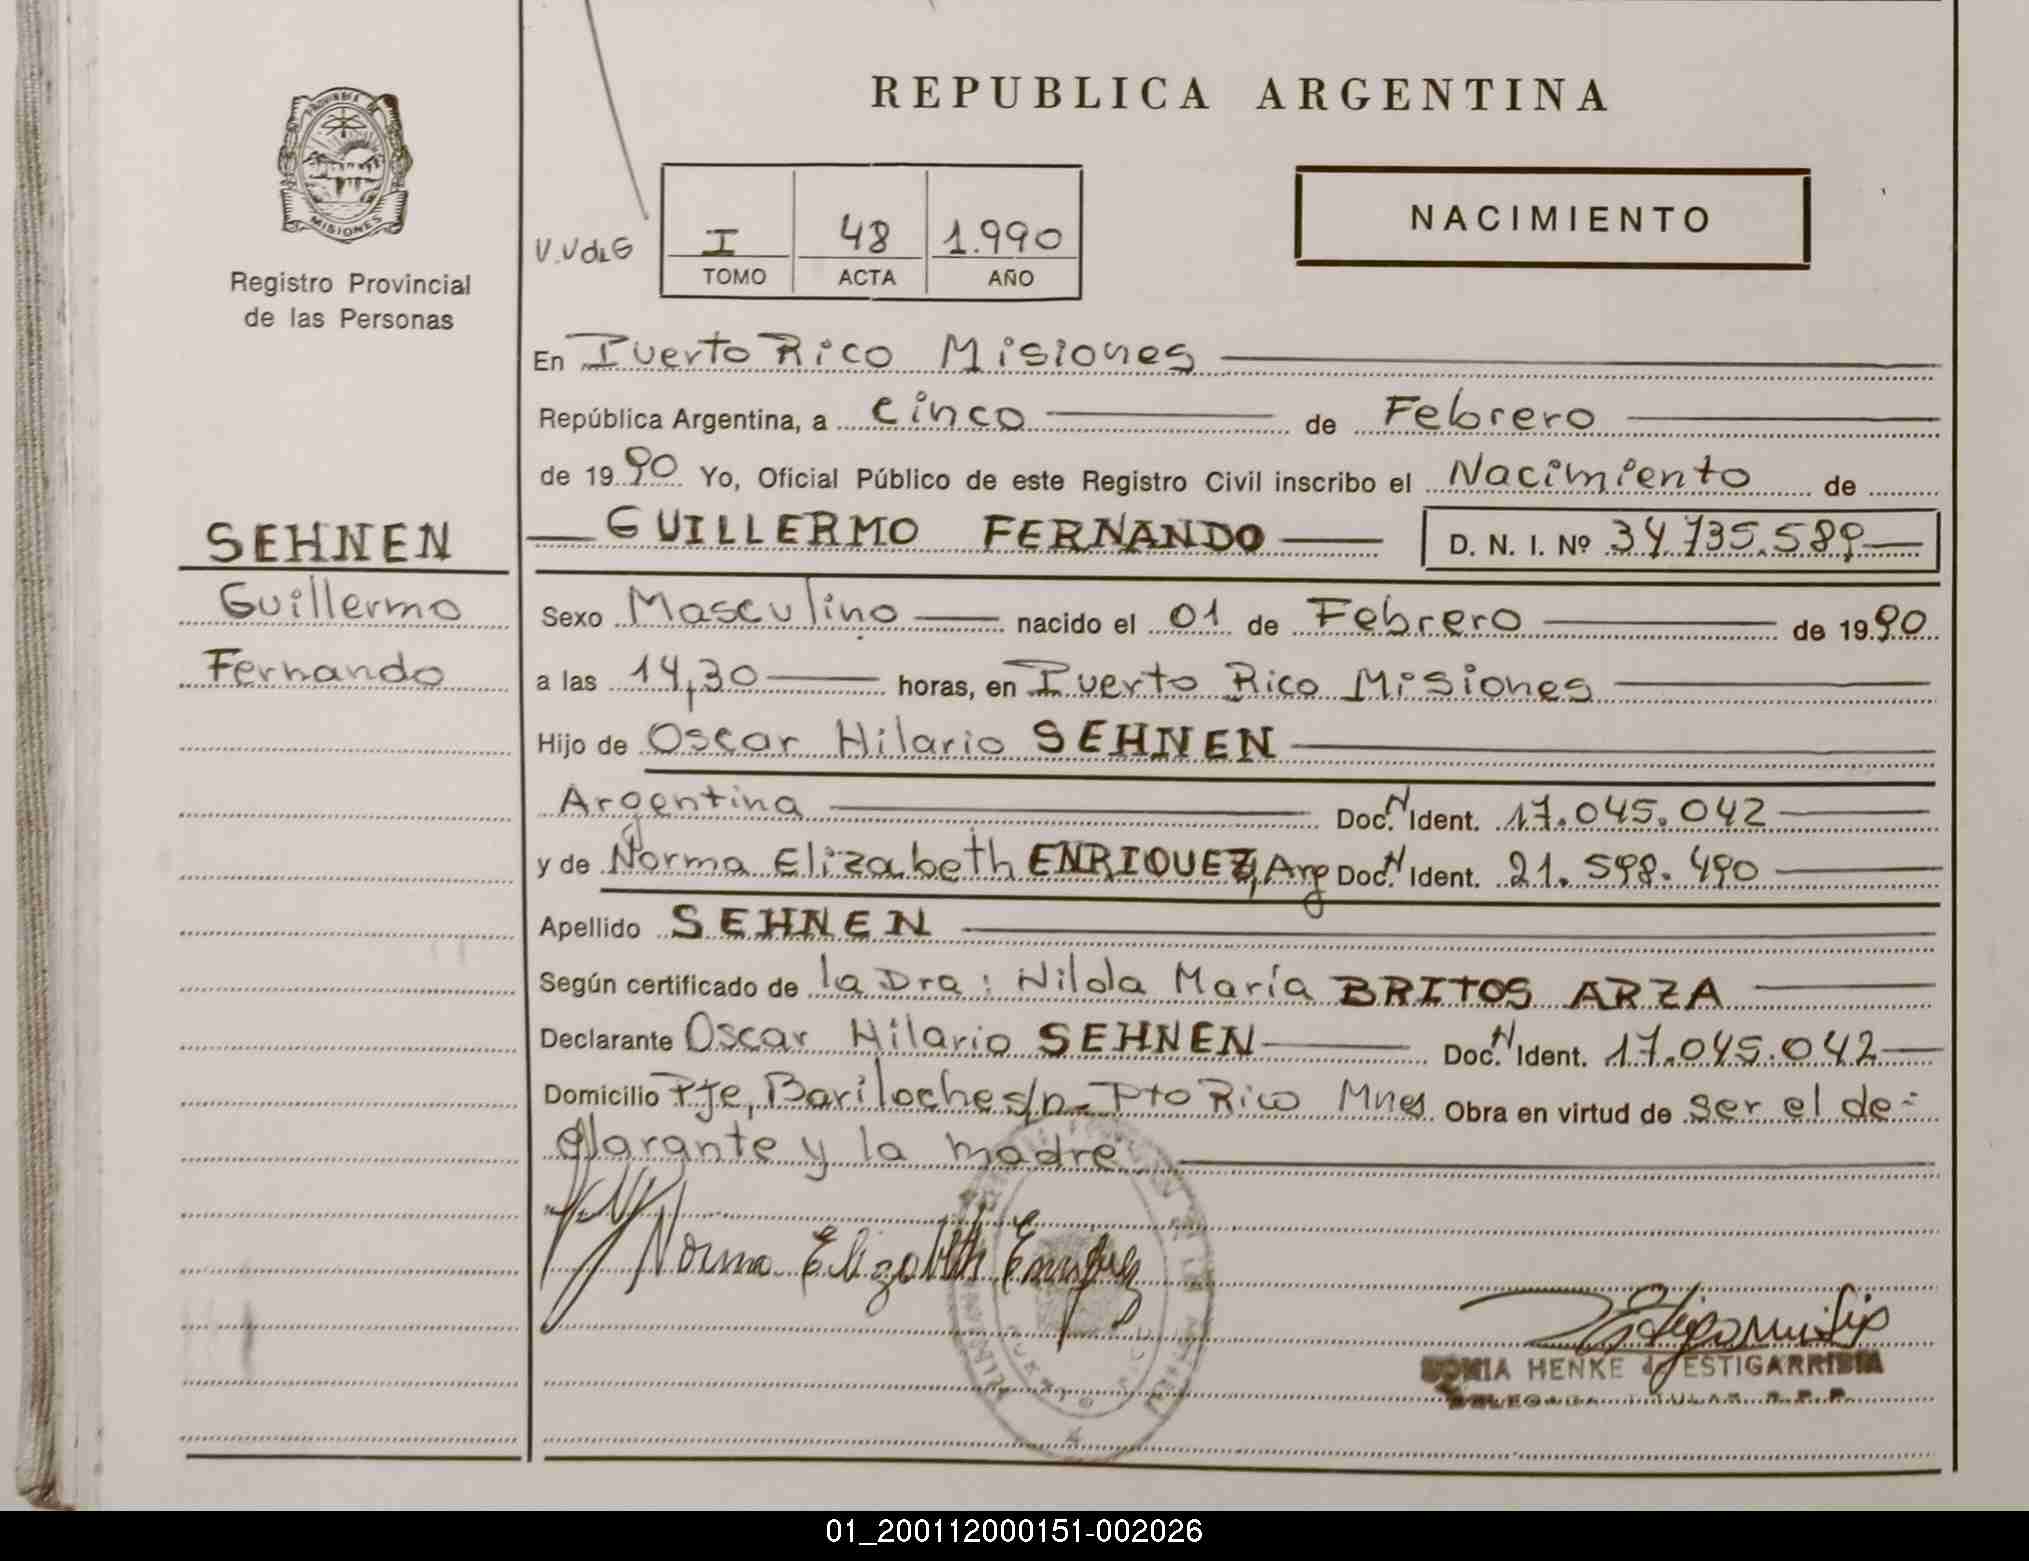 REPUBLICA ARGENTINA
PROVINCIA DE
MISIONES
Registro Provincial
de las Personas
V.VdeG
I 48 1.990
TOMO ACTA AÑO
NACIMIENTO
En Puerto Rico Misiones
República Argentina, a cinco de Febrero
de 1990 Yo, Oficial Público de este Registro Civil inscribo el Nacimiento de
SEHNEN
Guillermo
Fernando
GUILLERMO FERNANDO D. N. I. Nº 34.735.589
Sexo Masculino nacido el 01 de Febrero de 1990
a las 14,30 horas, en Puerto Rico Misiones
Hijo de Oscar Hilario SEHNEN
Argentina Doc. N Ident. 17.045.042
y de Norma Elizabeth ENRIQUEZ, Arg Doc. N Ident. 21.598.490
Apellido SEHNEN
Según certificado de la Dra: Nilda María BRITOS ARZA
Declarante Oscar Hilario SEHNEN Doc. N Ident. 17.045.042
Domicilio Pje, Bariloche s/n- Pto Rico Mnes Obra en virtud de ser el de-
clarante y la madre
Norma Elizabeth Enriquez
SONIA HENKE de ESTIGARRIBIA
DELEGADA TITULAR R.P.P.
01_200112000151-002026